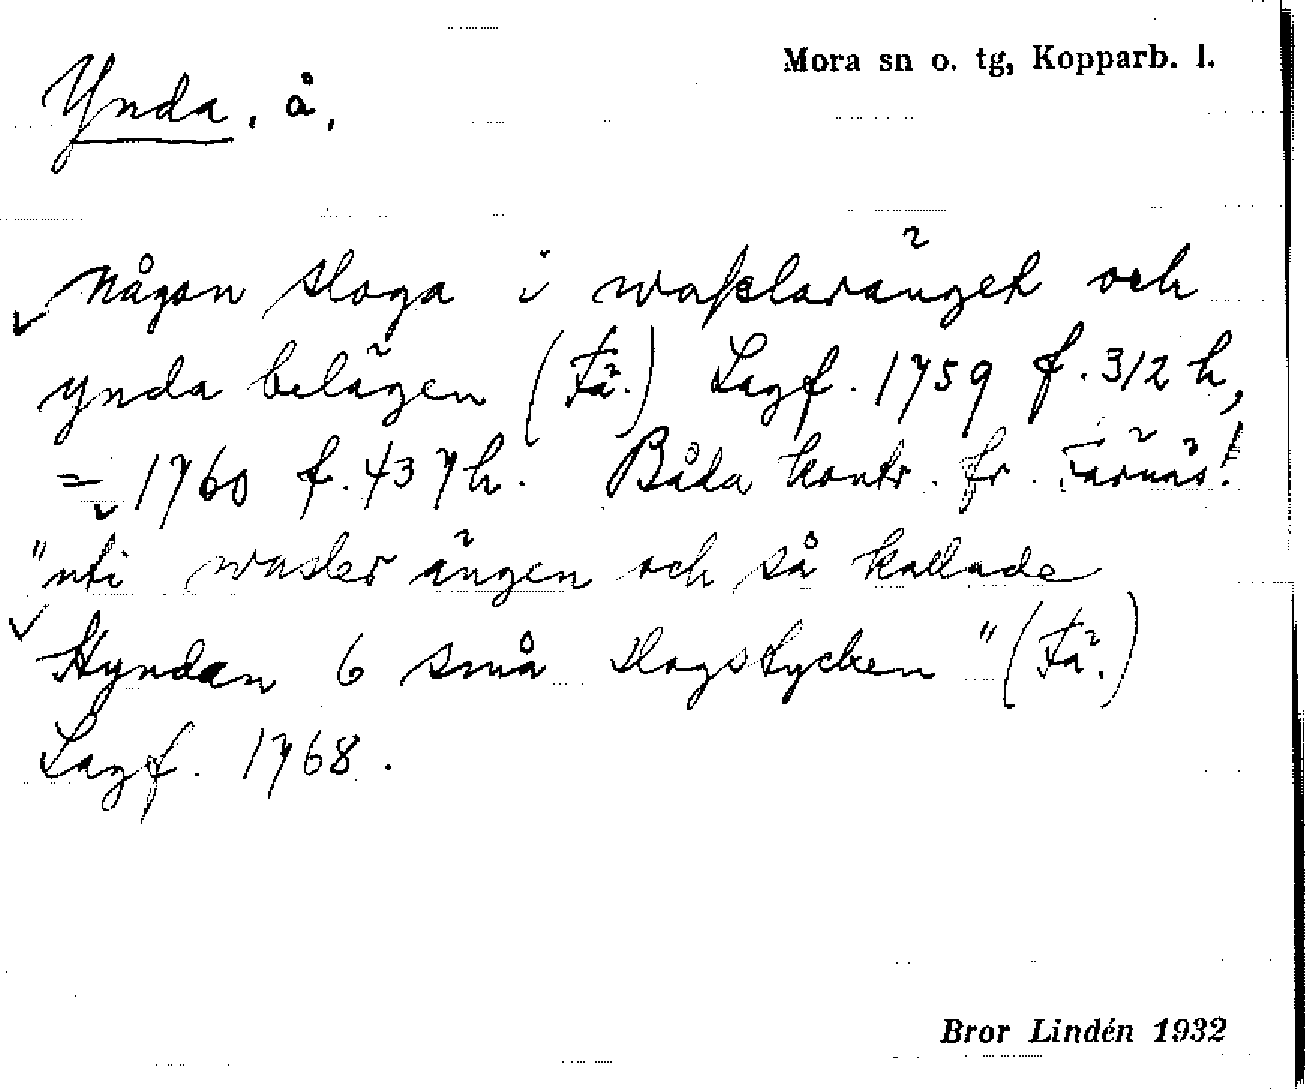 Mora sn o. tg, Kopparb. l.
Ynda, å,
Någon sloga i wasslaränget och
ynda belägen (Fä.) Lagf. 1759 f. 312 h,
= 1760 f. 437 h. Båda kontr. fr. Färnäs!
"uti wasler ängen och så kallade
Hyndan 6 små slogstycken" (Fä.)
Lagf. 1768.
Bror Lindén 1932